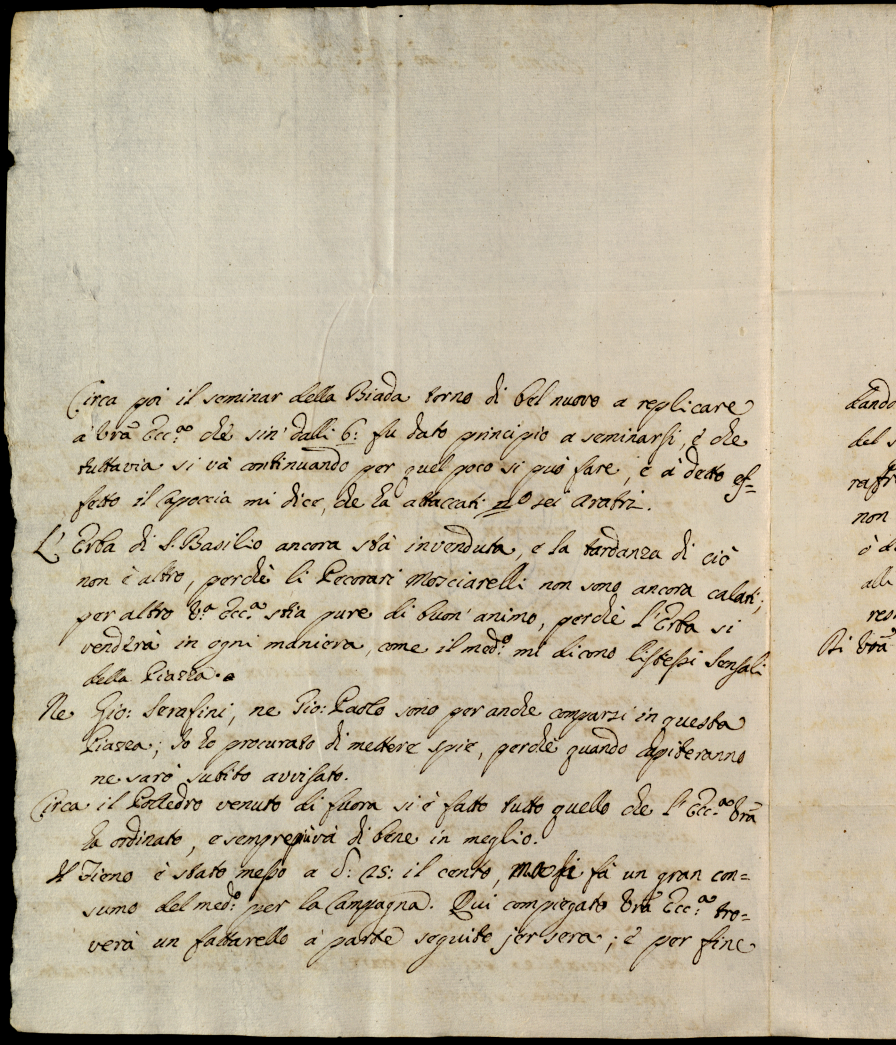 Circa poi il seminar della Biada torno di bel nuovo a replicare
à Vrã Ecc.ª che sin' dalli 6: fu dato principio a seminarsi, è che
tuttavia si và continuando per quel poco si può fare, e à detto ef=
fetto il Capoccia mi dice, che ha attaccati nº sei aratri.
L'Erba di S. Basilio ancora stà invenduta, e la tardanza di ciò
non è altro, perchè li Pecorari Mosciarelli non sono ancora calati;
per altro V.ª Ecc.ª stia pure di buon' animo, perchè l'Erba si
venderà in ogni maniera, come il med.º mi dicono l'istessi Sensali
della Piazza.
Ne Gio: Serafini, ne Gio: Paolo sono per anche comparsi in questa
Piazza; Io ho procurato di mettere spie, perchè quando capiteranno
ne sarò subito avvisato.
Circa il Polledro venuto di fuora si è fatto tutto quello che l'Ecc.ª Vrã
ha ordinato, e sempre più và di bene in meglio.
Il Fieno è stato messo a 25: il cento, ma si fà un gran con=
sumo del med.º per la Campagna. Qui compiegato Vrã Ecc.ª tro=
verà un fattarello à parte seguito jer sera; è per fine
tando
del s
rafi
non
è d
alli
res
Di Vrã